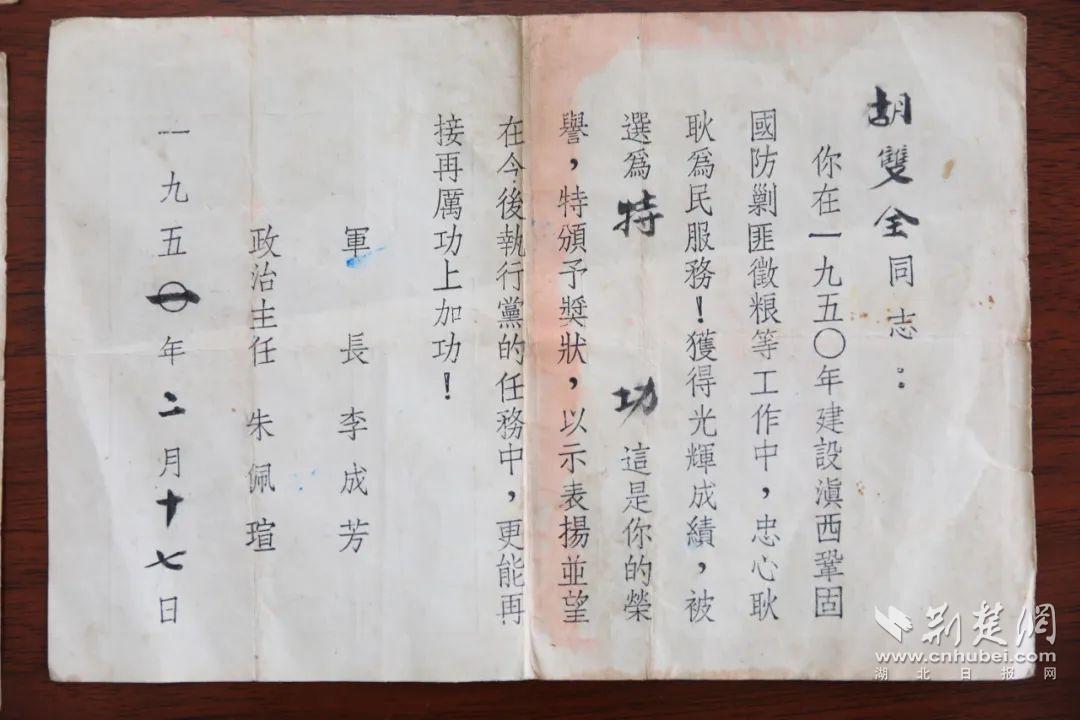 胡雙全同志：
你在一九五〇年建設滇西鞏固
國防剿匪徵粮等工作中，忠心耿
耿爲民服務！獲得光輝成績，被
選爲特 功這是你的榮
譽，特頒予獎狀，以示表揚並望
在今後執行黨的任務中，更能再
接再厲功上加功！
軍 長 李成芳
政治主任 朱佩瑄
一九五〇年二月十七日
荆楚網
www.cnhubei.com
湖北日报网